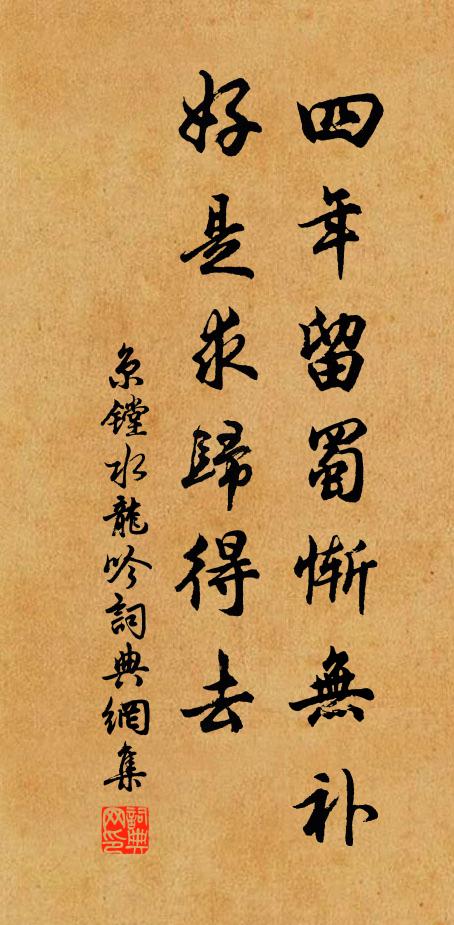 四年留蜀慚無补
好是求歸得去
京鏜水龍吟詞典網集
詞典网印